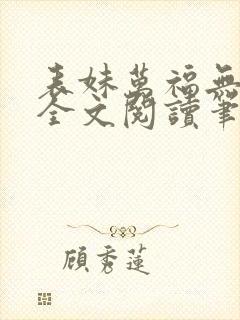 表妹萬福無
全文閱讀筆
顧秀蓮